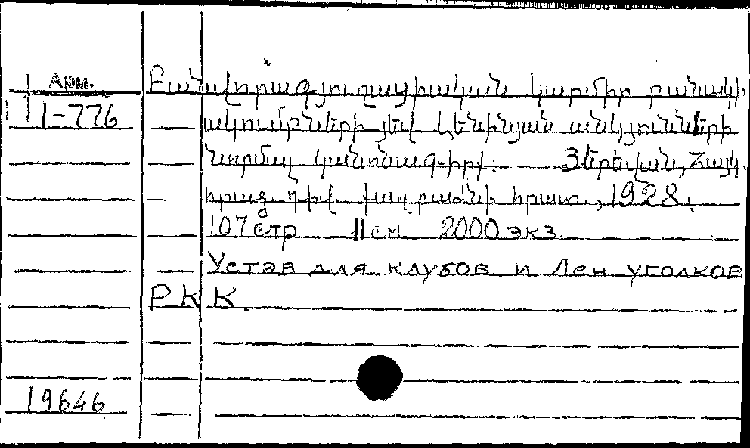 Арм.
1-776
Բանվորագյուղացիական կարմիր բանակի
ակումբների յեվ Լենինյան անկյունների
նորմալ կանոնադիրք. Յերեվան, Հայկ.
հրատ., 1928.
107 стр 11 см 2000 экз.
Устав для клубов и Лен уголков
РКК
19646